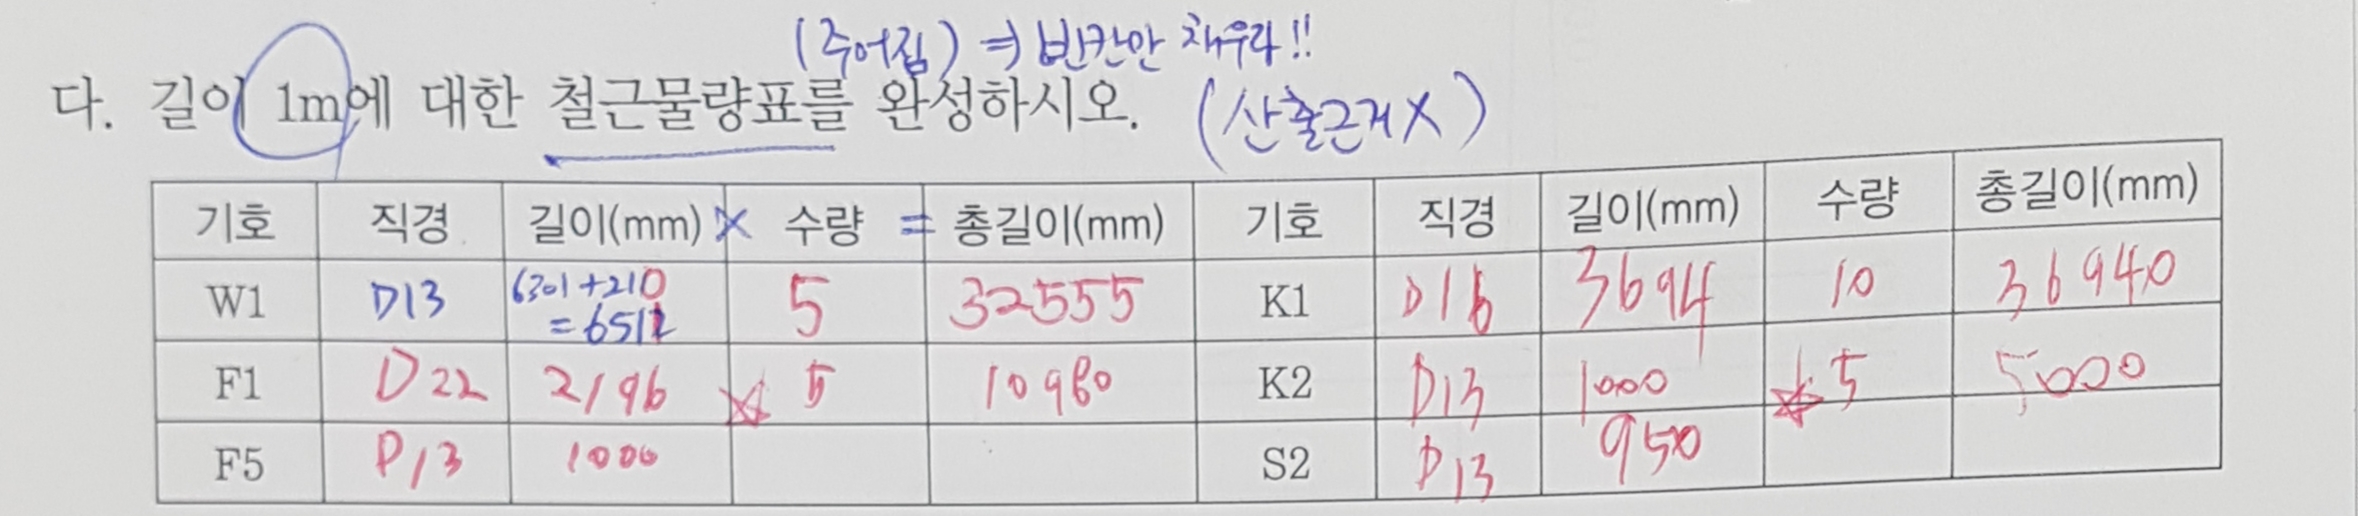 (주어짐) ⇒ 빈칸만 채우라!!
다. 길이 1m에 대한 철근물량표를 완성하시오. (산출근거X)
기호 직경 길이(mm) × 수량 = 총길이(mm) 기호 직경 길이(mm) 수량 총길이(mm)
W1 D13 6301+210 =6511 5 32555 K1 D16 3694 10 36940
F1 D22 2196 ☆ 5 10980 K2 D13 1000 ☆ 5 5000
F5 D13 1000 S2 D13 950